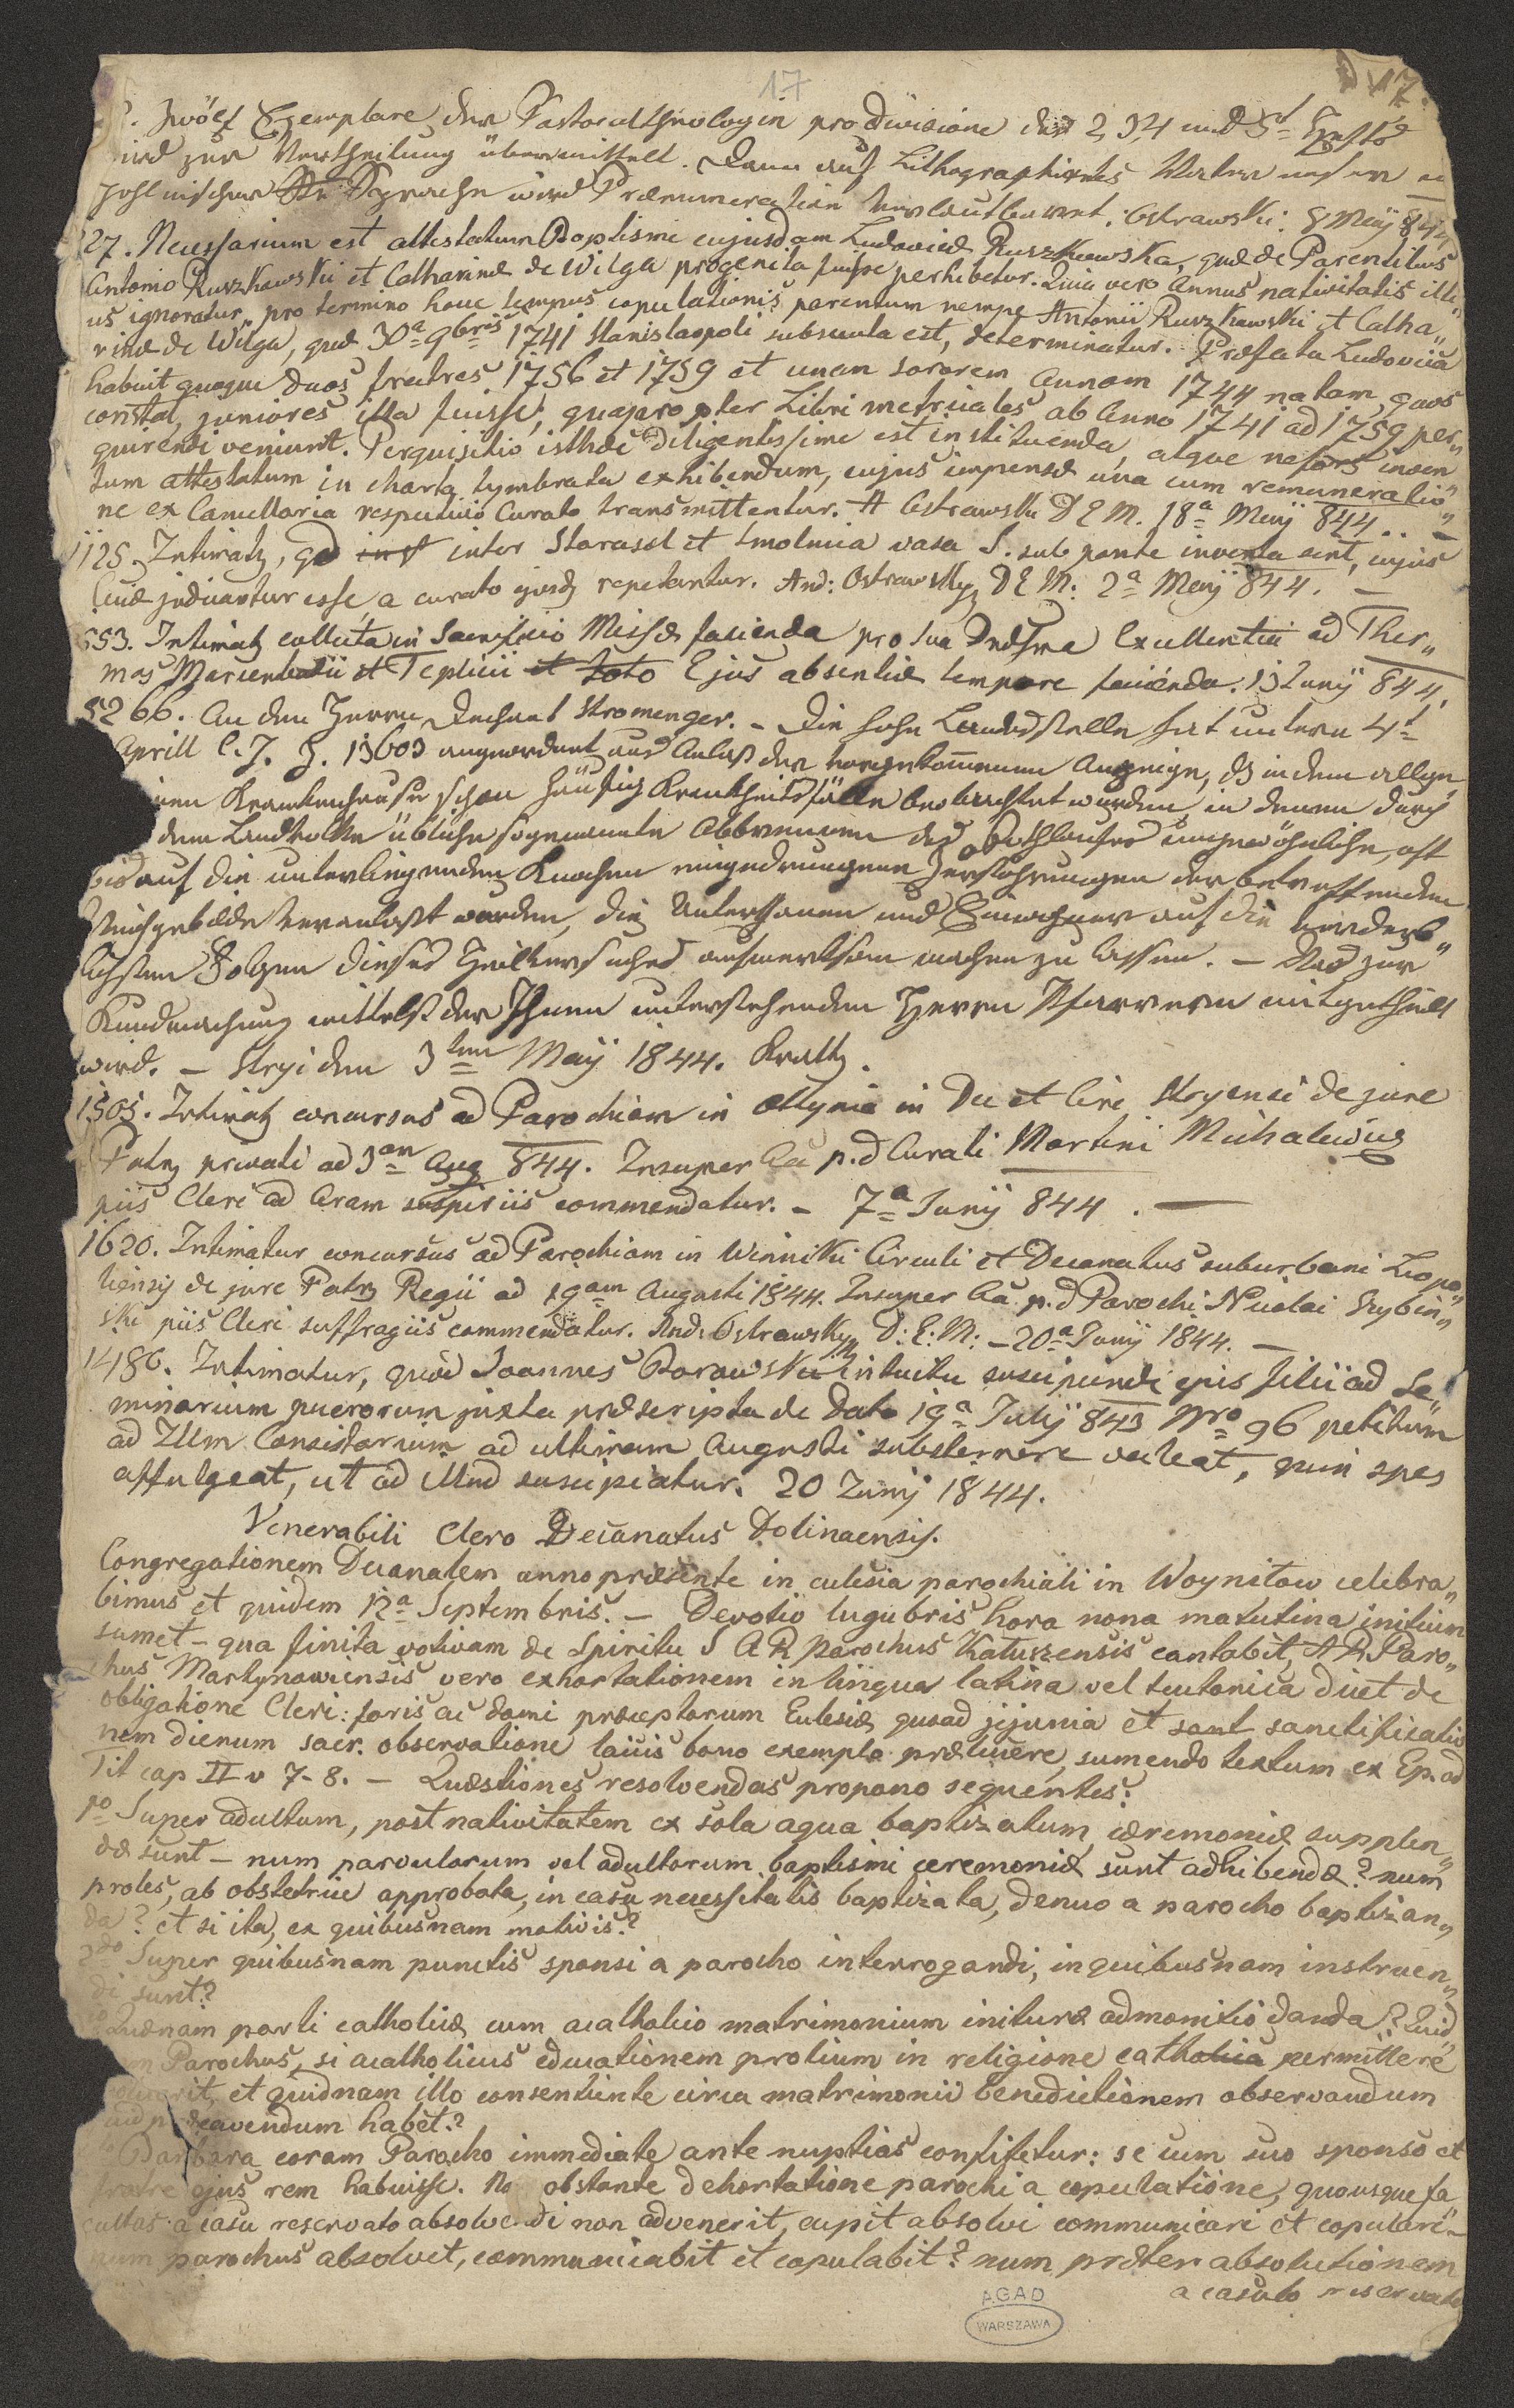 17
17.
Zwölf Exemplare der Pastoraltheologie pro divisione des 2, 3, 4 und 5t Heftes
wird zur Vertheilung übermittelt. Dann auf Lithographirtes
pohlnischer Sprache wird Praenumeration verlautbaret. Ostrawski: 8 Maÿ 844
27. Necessarium est attestatum Baptismi cujusdam Ludovicæ Ruszkowska, quæ de Parentibus
Antonio Ruszkowski et Catharinæ de Wilga progenita fuisse perhibetur. Quia vero annus nativitatis illi„
us ignoratur, pro termino houe tempus copulationis parentum nempe Antonii Ruszkowski et Catha„
rinæ de Wilga, quæ 30a 9bris 1741 Stanislaopoli subsecuta est, determinatur. Præfata Ludovica
habuit quoque duos fratres 1756 et 1759 et unam sororem Annam 1744 natam, quos
constat, juniores illa fuisse, quapropter Libri metricales ab anno 1741 ad 1759 per„
quirendi veniunt. Perquisitio isthæc diligentissime est instituenda, atque nefors inven
tum attestatum in charta tymbrata exhibendum, cujus impensæ una cum remuneratio„
ne ex Cancellaria respectivo Curato transmittentur. A Ostrawski D E M. 18a Maÿ 844.
1125. Intimatz, qd inst inter Starasol et Smolnica vasa S. sub ponte inventa sint, cujus
Ecclæ judicantur esse, a curato ejusdz repetantur. And: Ostrawsky D E M: 2a Maÿ 844. —
553. Intimatz collecta in Sacrificio Missæ facienda pro sua Excellentia ad Ther„
mas Marienbadii et Teplicii et toto Ejus absentiæ tempore facienda. 13 Junÿ 844.
5266. An den Herrn Dechant Stromenger. — Die hohe Landesstelle hat unterm 4t
Aprill l. J. Z. 13603 angeordnet aus Anlaß der vorgekommenen Anzeige, dß in dem allge„
inen Krankenhause schon häufig Krankheitsfälle beobachtet wurden in denen durch
dem Landvolke übliche sogenannte Abbrennen des Rothlaufes ungewöhnliche, oft
bis auf die unterliegenden Knochen eingedrungene Zerstöhrungen der betreffenden
Weichgebilde veranlaßt wurden, die Unterthanen und Einwohner auf die verderb„
lichsten Folgen dieses Heilversuches aufmerksam machen zu lassen. — Was zur
Kundmachung mittelst der Ihnen unterstehenden Herrn Pfarrern mitgetheilt
wird. — Stryi den 3ten Maÿ 1844. Kratz.
1505. Intimatz concursus ad Parochiam in in Dec et Circ Stryensi de jure
Patrz privati ad 3am Aug 844. Insuper Aa p.d Curati Martini Michalewicz
piis Cleri ad Aram suspiriis commendatur. — 7a Junÿ 844. —
1620. Intimatur concursus ad Parochiam in Winniki Circuli et Decanatus suburbani Leopo„
liensis de jure Patrz Regii ad 19am Augusti 1844. Insuper Aa p.d Parochi Nicolai Grybin„
ski piis Cleri suffragiis commendatur. And: Ostrawsky D: E: M: — 20a Junÿ 1844. —
1486. Intimatur, quod Joannes Borawski intuitu suscipiendi ejus filii ad Se„
minarium puerorum juxta præscripta de dato 19a Julÿ 843 Nro 96 petitum
ad Illm Consistorium ad ultimam Augusti substernere valeat, quin spes
affulgeat, ut ad illud suscipiatur. 20 Junÿ 1844.
Venerabili Clero Decanatus Dolinaensis.
Congregationem Decanalem anno præsente in ecclesia parochiali in Woynilow celebra„
bimus et quidem 12a Septembris. — Devotio lugubris hora nona matutina initium
sumet — qua finita votivam de Spiritu S A R Parochus Kaluszensis cantabit, A R Paro„
chus Martynowiensis vero exhortationem in lingua latina vel teutonica dicet de
obligatione Cleri: foris ac domi præceptorum Ecclesiæ quoad jejunia et sant sanctificatio
nem dierum sacr. observatione laicis bono exemplo prælucere, sumendo textum ex Ep. ad
Tit cap II v 7-8. — Quæstiones resolvendas propono sequentes:
1o Super adultum, post nativitatem ex sola aqua baptizatum, cæremoniæ supplen„
dæ sunt — num parvulorum vel adultorum baptismi ceremoniæ sunt adhibendæ? num
proles, ab obstetrice approbata, in casu necessitatis baptizata, denuo a parocho baptizan„
da? et si ita, ex quibusnam motivis?
2do Super quibusnam punctis sponsi a parocho interrogandi, in quibusnam instruen„
di sunt?
Quænam parti catholicæ cum acatholico matrimonium inituræ admonitio danda? Quid
Parochus, si acatholicus educationem prolium in religione catholica permittere
et quidnam illo consentiente circa matrimonii benedictionem observandum
præcavendum habet?
Barbara coram Parocho immediate ante nuptias confitetur: se cum suo sponso et
fratre ejus rem habuisse. No obstante dehortatione parochi a copulatione, quousque fa„
cultas a casu reservato absolvendi non advenerit, cupit absolvi communicari et copulari —
num parochus absolvet, communicabit et copulabit? num præter absolutionem
a casu reservato
AGAD
WARSZAWA